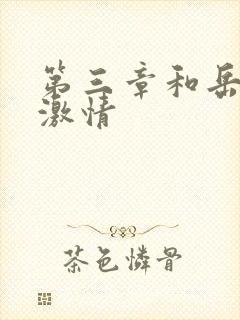 第三章和岳
激情
茶色憐骨